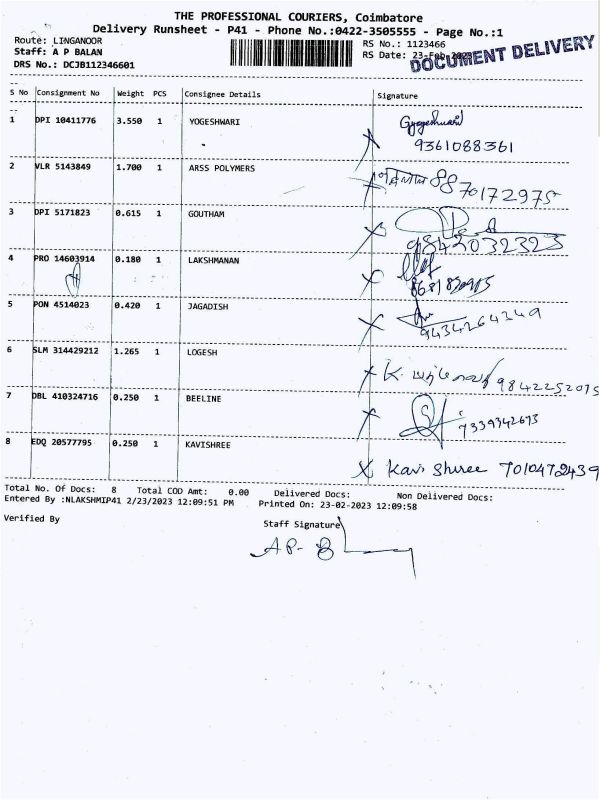 THE PROFESSIONAL COURIERS, Coimbatore
Delivery Runsheet - P41 - Phone No.:0422-3505555 - Page No.:1
Route: LINGANOOR
RS No.: 1123466
Staff: A P BALAN
RS Date: 23-Feb-2023
DOCUMENT DELIVERY
DRS No.: DCJB112346601
S No Consignment No Weight PCS Consignee Details Signature
1 DPI 10411776 3.550 1 YOGESHWARI
9361088361
2 VLR 5143849 1.700 1 ARSS POLYMERS
8870172975
3 DPI 5171823 0.615 1 GOUTHAM
9842032323
4 PRO 14603914 0.180 1 LAKSHMANAN
5 PON 4514023 0.420 1 JAGADISH
9434264349
6 SLM 314429212 1.265 1 LOGESH
K. 9842252075
7 DBL 410324716 0.250 1 BEELINE
7339342673
8 EDQ 20577795 0.250 1 KAVISHREE
Kavi Shree 7010472439
Total No. Of Docs: 8 Total COD Amt: 0.00 Delivered Docs: Non Delivered Docs:
Entered By :NLAKSHMIP41 2/23/2023 12:09:51 PM Printed On: 23-02-2023 12:09:58
Verified By Staff Signature
A P- B